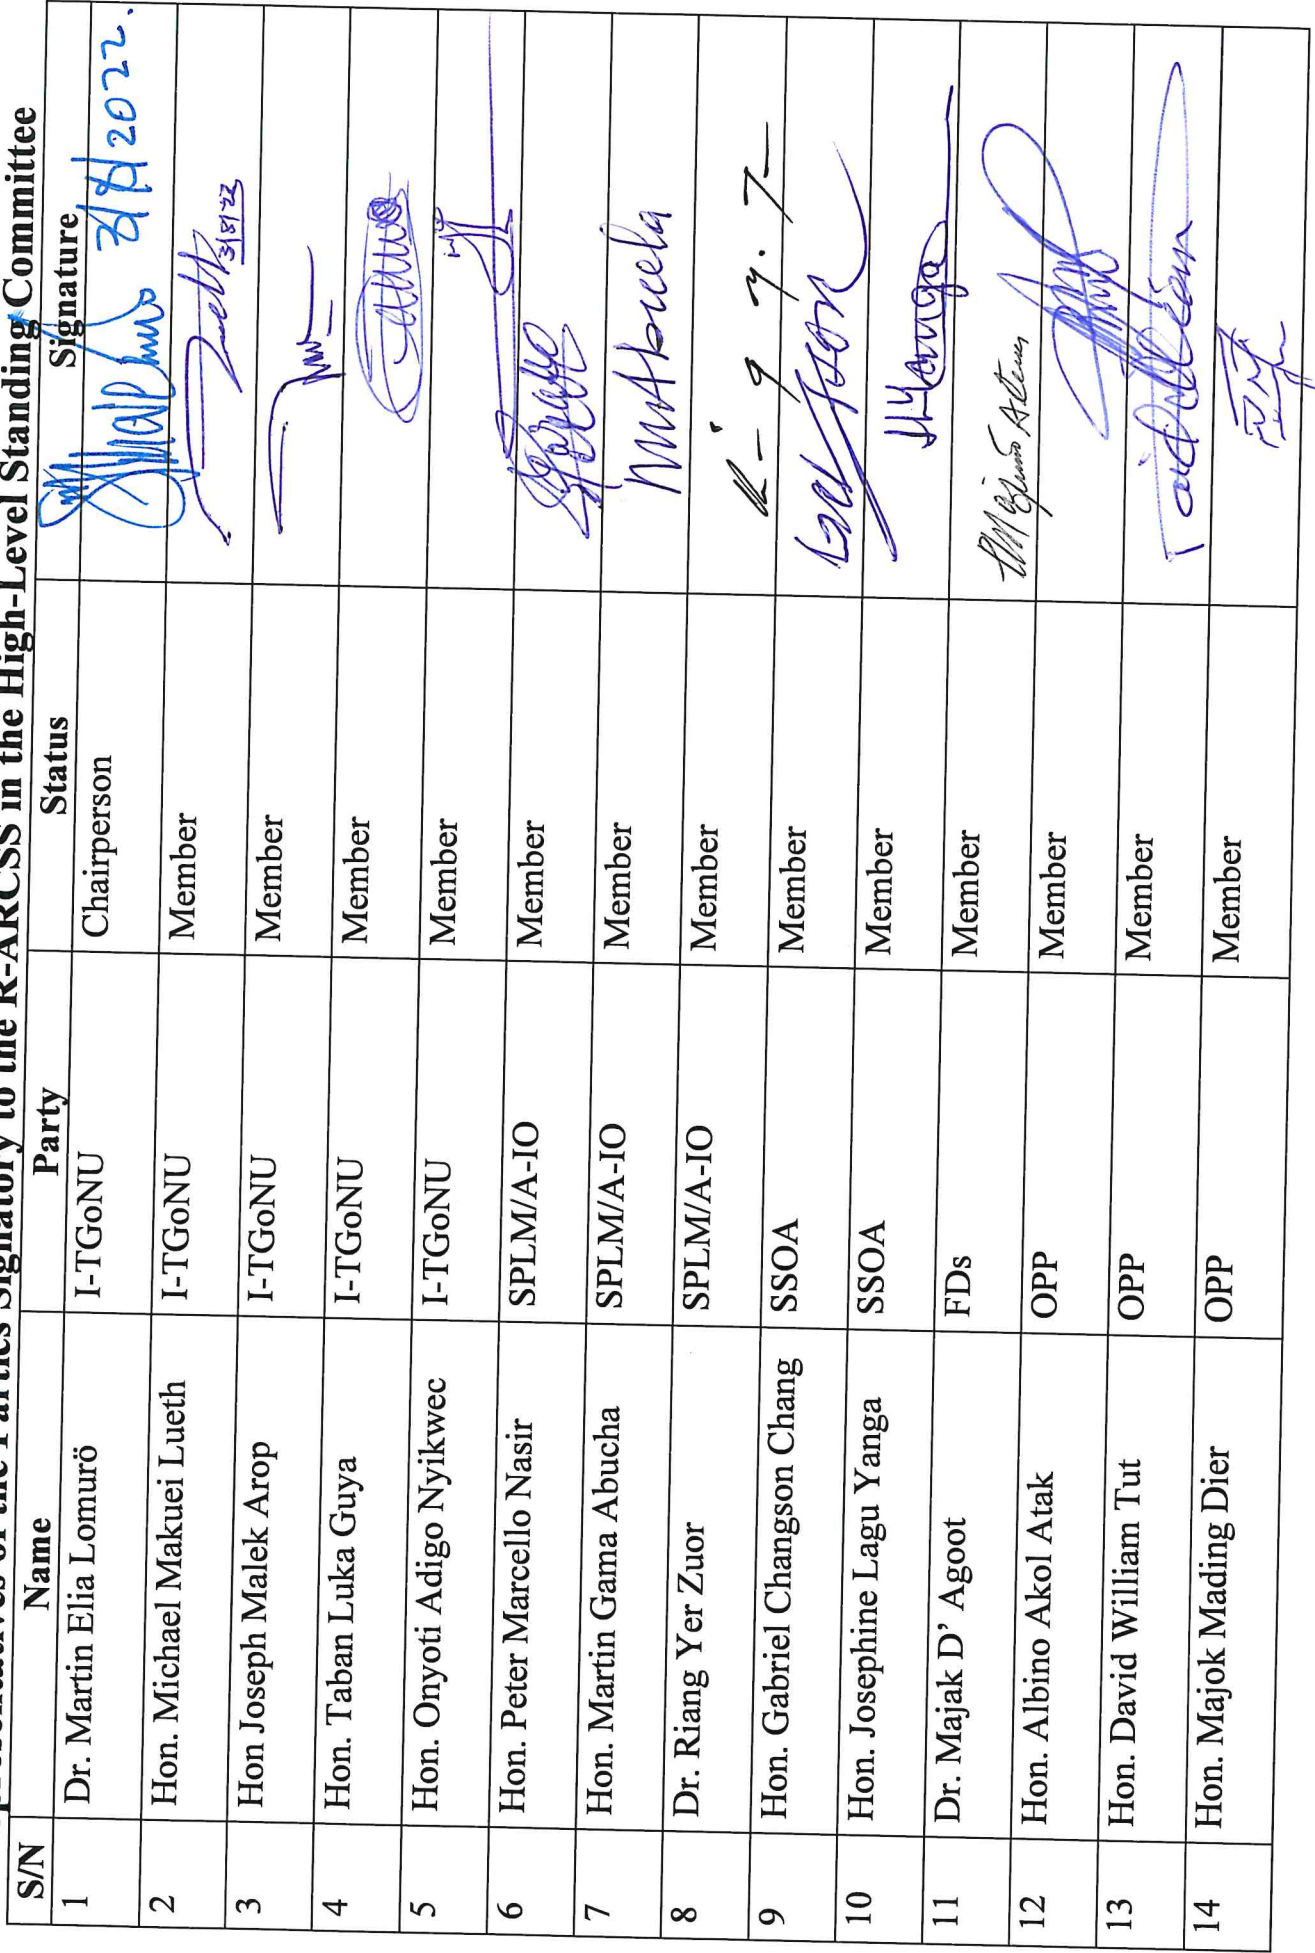 presentatives of the Parties Signatory to the R-ARCSS in the High-Level Standing Committee
S/N Name Party Status Signature
1 Dr. Martin Elia Lomurö I-TGoNU Chairperson 3/8/2022.
2 Hon. Michael Makuei Lueth I-TGoNU Member 3/8/22
3 Hon Joseph Malek Arop I-TGoNU Member
4 Hon. Taban Luka Guya I-TGoNU Member
5 Hon. Onyoti Adigo Nyikwec I-TGoNU Member
6 Hon. Peter Marcello Nasir SPLM/A-IO Member
7 Hon. Martin Gama Abucha SPLM/A-IO Member
8 Dr. Riang Yer Zuor SPLM/A-IO Member
9 Hon. Gabriel Changson Chang SSOA Member
10 Hon. Josephine Lagu Yanga SSOA Member
11 Dr. Majak D' Agoot FDs Member
12 Hon. Albino Akol Atak OPP Member
13 Hon. David William Tut OPP Member
14 Hon. Majok Mading Dier OPP Member